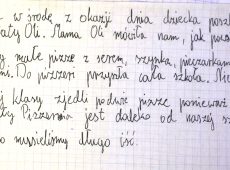 w środę z okazji dnia dziecka posz
Oli. Mama Oli mówiła nam, jak
małe pizze z serem, szynką, pieczarkam
Do pizzeri przyszła cała szkoła. Nie
klasy zjedli podwie pizze ponieważ
Pizzernia jest daleko od naszej sz
musieliśmy długo iść.